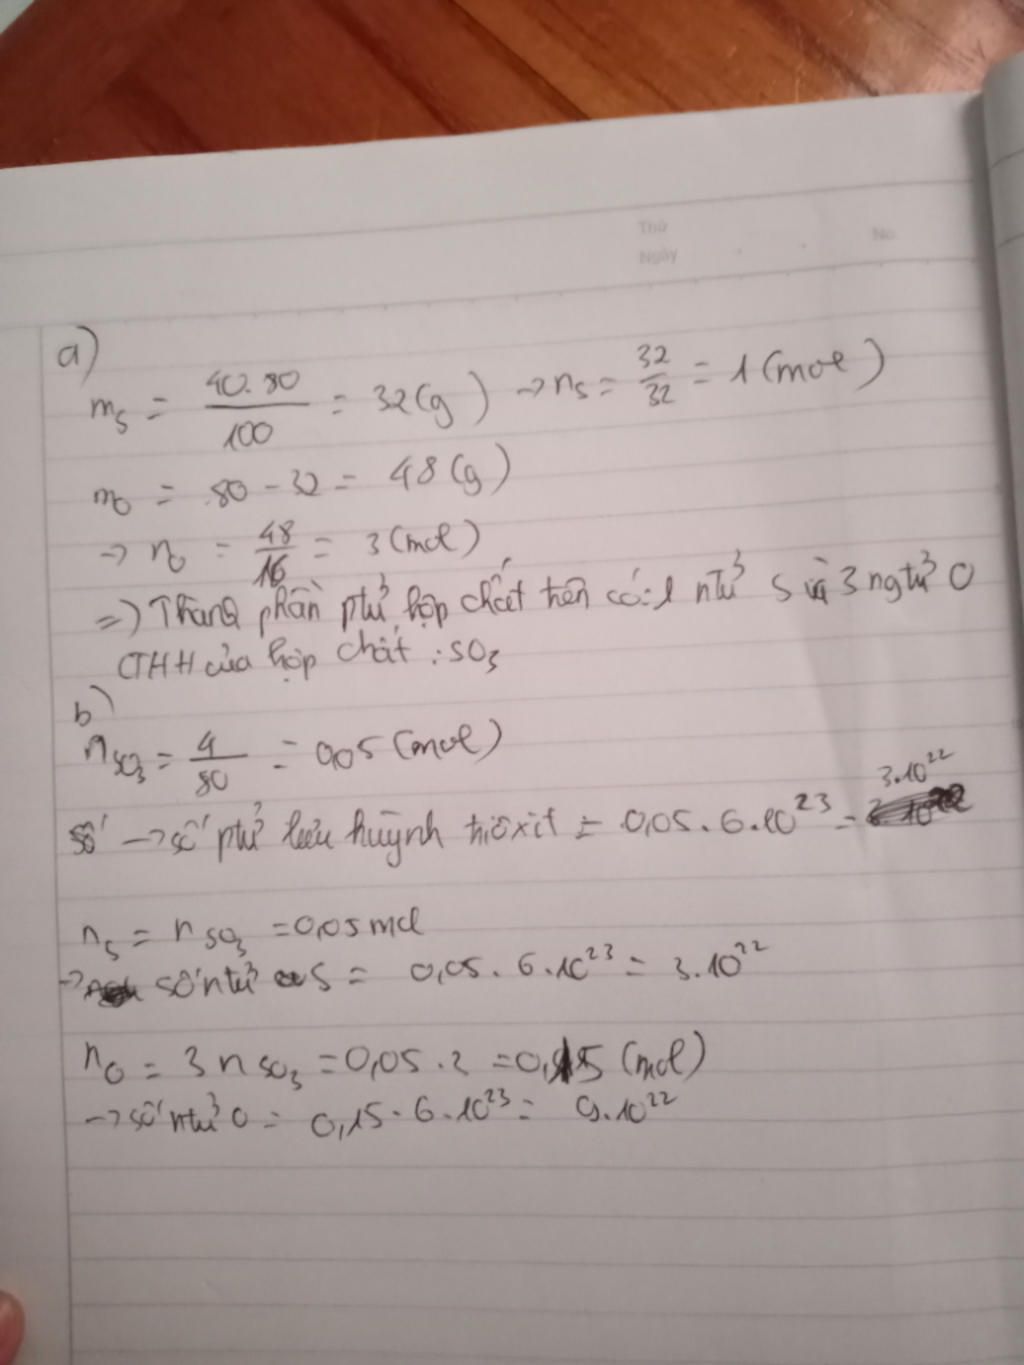 Thứ
Ngày
No.
a)
mS = 40.80/100 = 32(g) → nS = 32/32 = 1 (mol)
mO = 80 - 32 = 48(g)
→ nO = 48/16 = 3 (mol)
=> Thành phần ptử hợp chất trên có: 1 ntử S và 3 ngtử O
CTHH của hợp chất : SO3
b)
nSO3 = 4/80 = 0,05 (mol)
3.10^22
số → số ptử lưu huỳnh trioxit = 0,05 . 6.10^23 =
nS = nSO3 = 0,05 mol
→ số ntử S = 0,05. 6.10^23 = 3.10^22
nO = 3 nSO3 = 0,05 . 3 = 0,15 (mol)
→ số ntử O = 0,15. 6.10^23 = 9.10^22